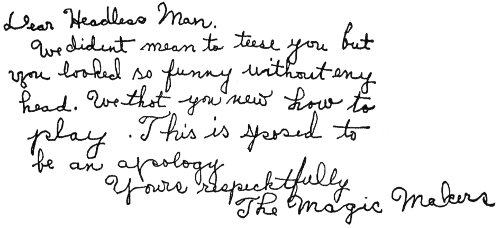 Dear Headless Man.
We dident mean to teese you but
you looked so funny without eny
head. We thot you new how to
play. This is sposed to
be an apology
Yours respecktfully
The Magic Makers